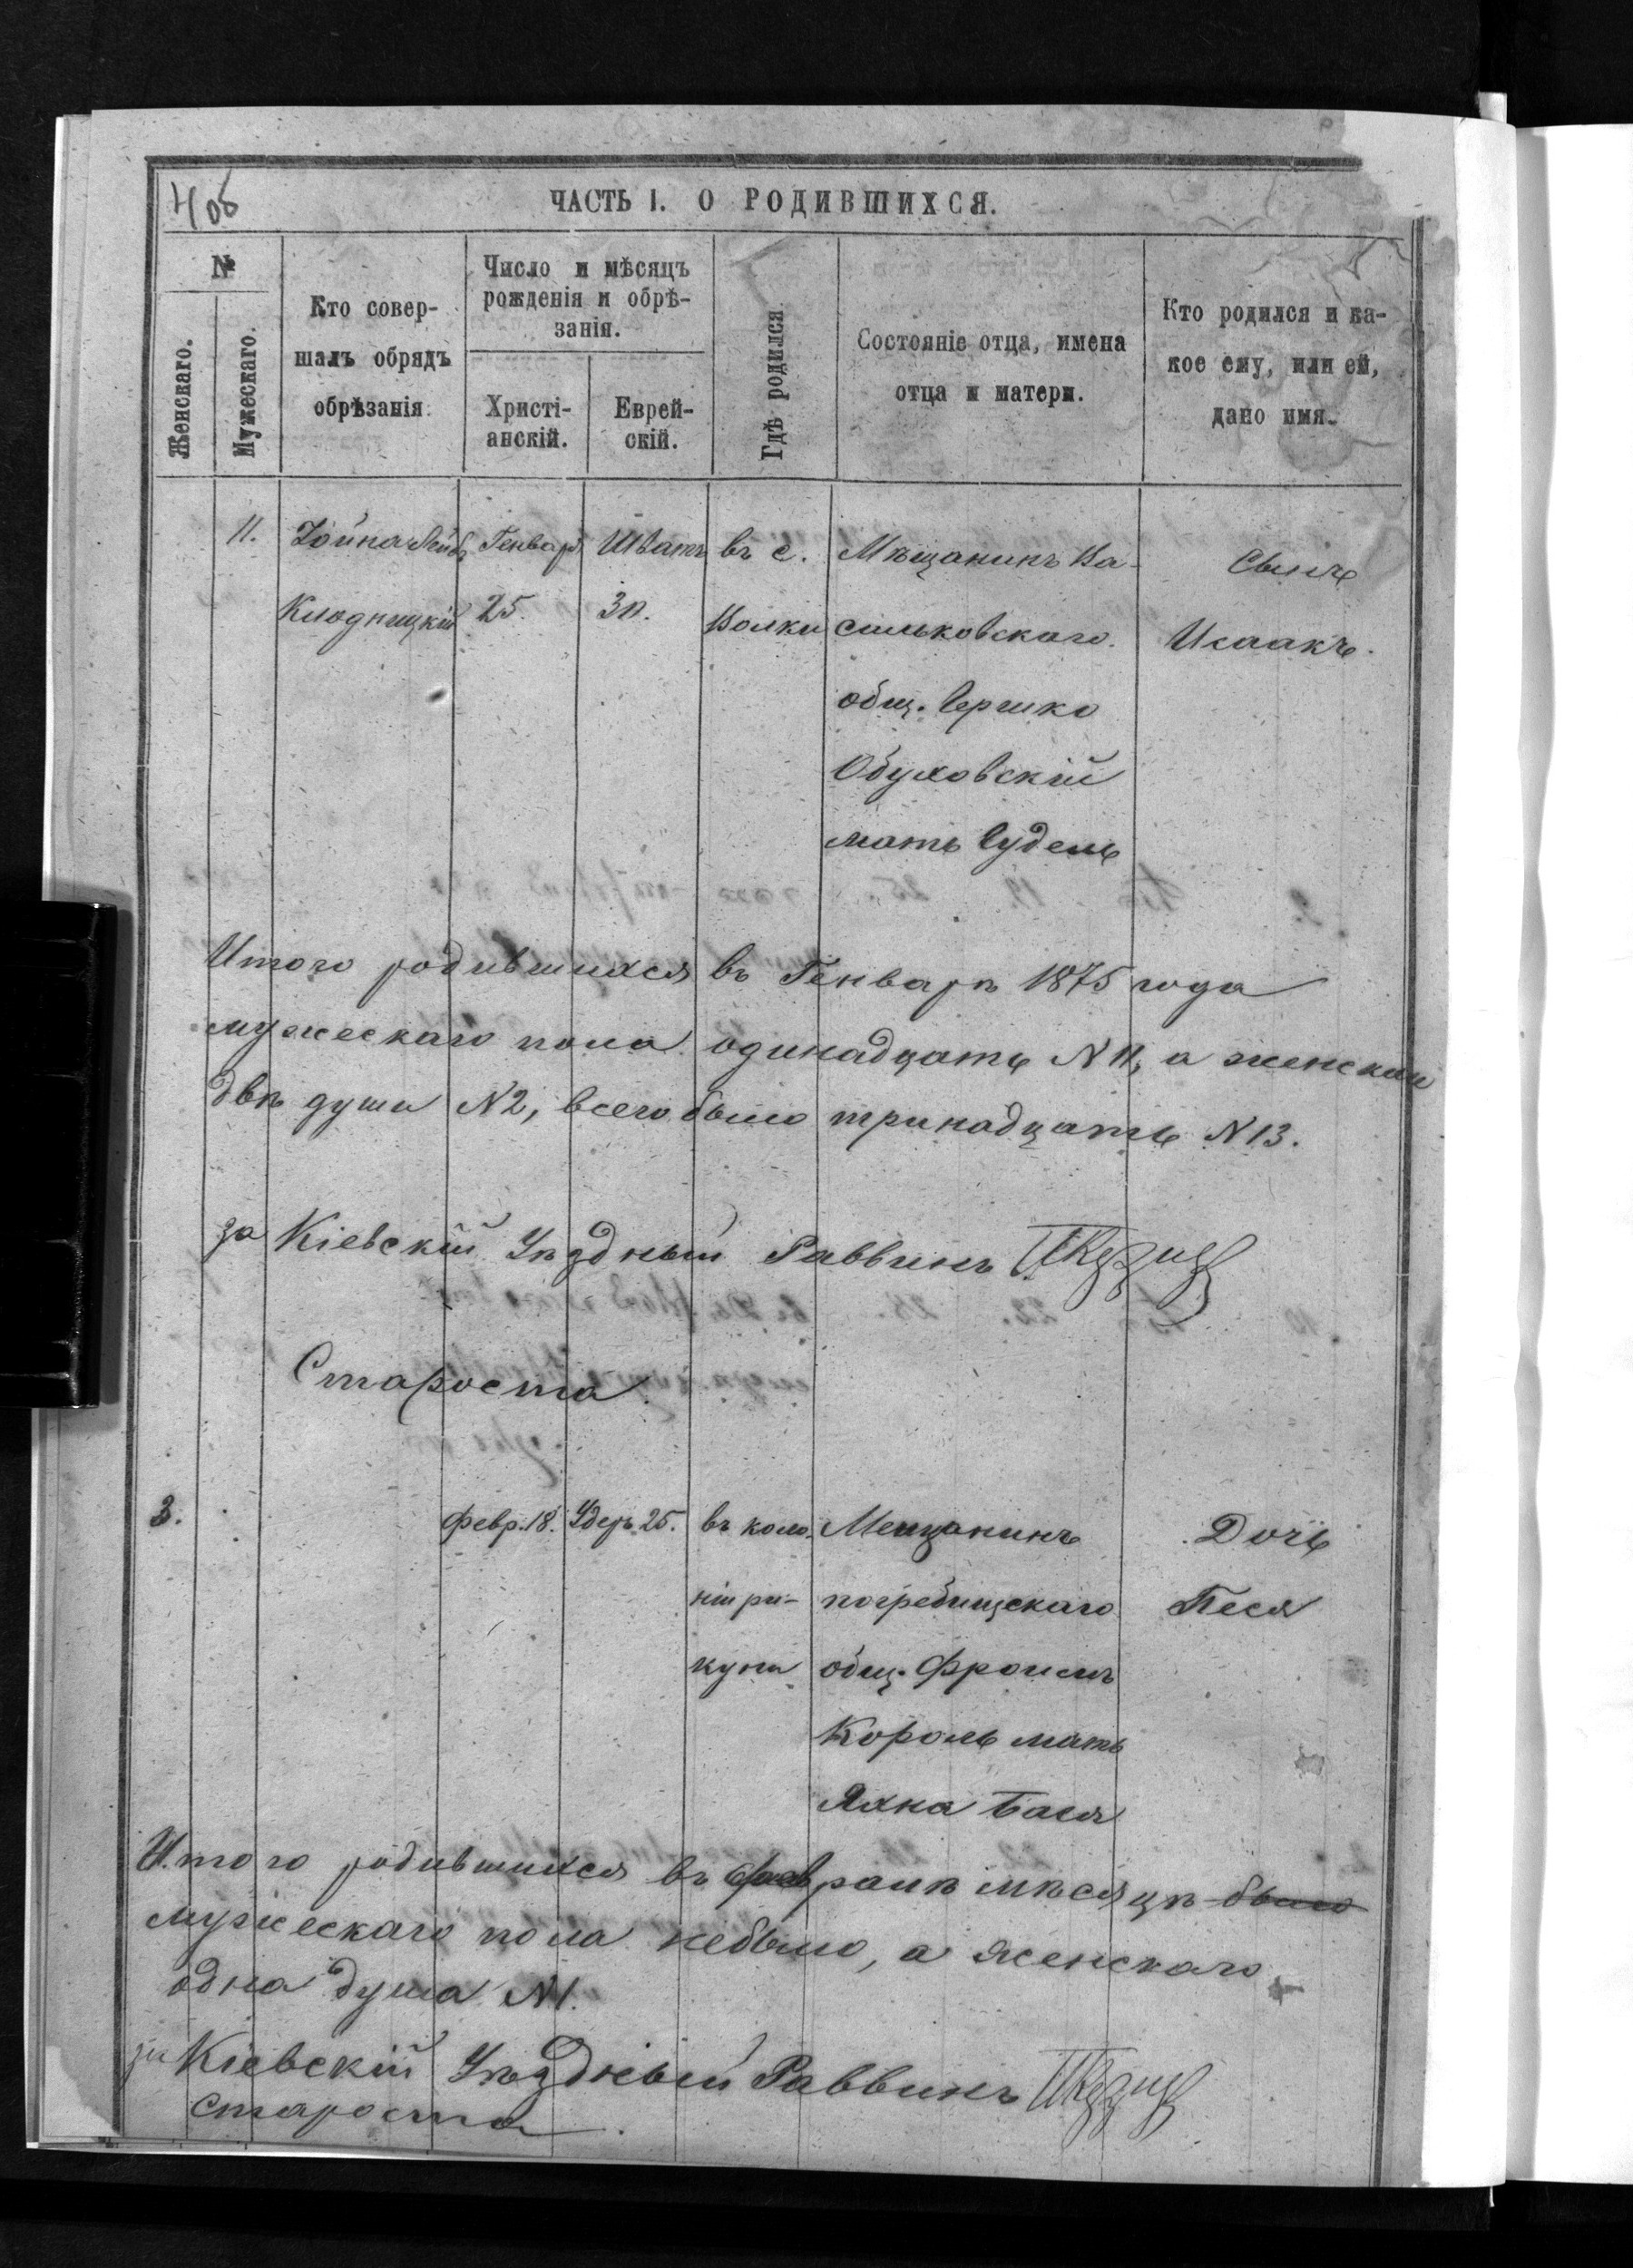 4об
ЧАСТЬ I. О РОДИВШИХСЯ.
№
Женскаго.
Мужескаго.
Кто совер-
шалъ обрядъ
обрѣзанія
Число и мѣсяцъ
рожденія и обрѣ-
занія.
Христі-
анскій.
Еврей-
скій.
Гдѣ родился
Состояніе отца, имена
отца и матери.
Кто родился и ка-
кое ему, или ей,
дано имя.
11. Іойна Лейб Генвар Шватъ въ с. Мѣщанинъ Ва- Сынъ
25. 30. Волки сильковскаго. Исаакъ.
общ. Гершко
Обуховскій
мать Гудель
Итого родившихся въ Генварѣ 1875 года
мужескаго пола одинадцать N 11, а женскаго
двѣ души N 2, всего было тринадцать N 13.
за Кіевскій Уѣздный Раввинъ
Староста
3. Февр. 18. Адеръ 25. въ коло- Мещанинъ Дочь
ніи ри- погребищскаго Песя
куни общ. Фроимъ
Король мать
Яхна Бася
Итого родившихся въ Февралѣ мѣсяцѣ было
мужескаго пола небыло, а женскаго
одна душа N 1.
за Кіевскій Уѣздный Раввинъ
Староста